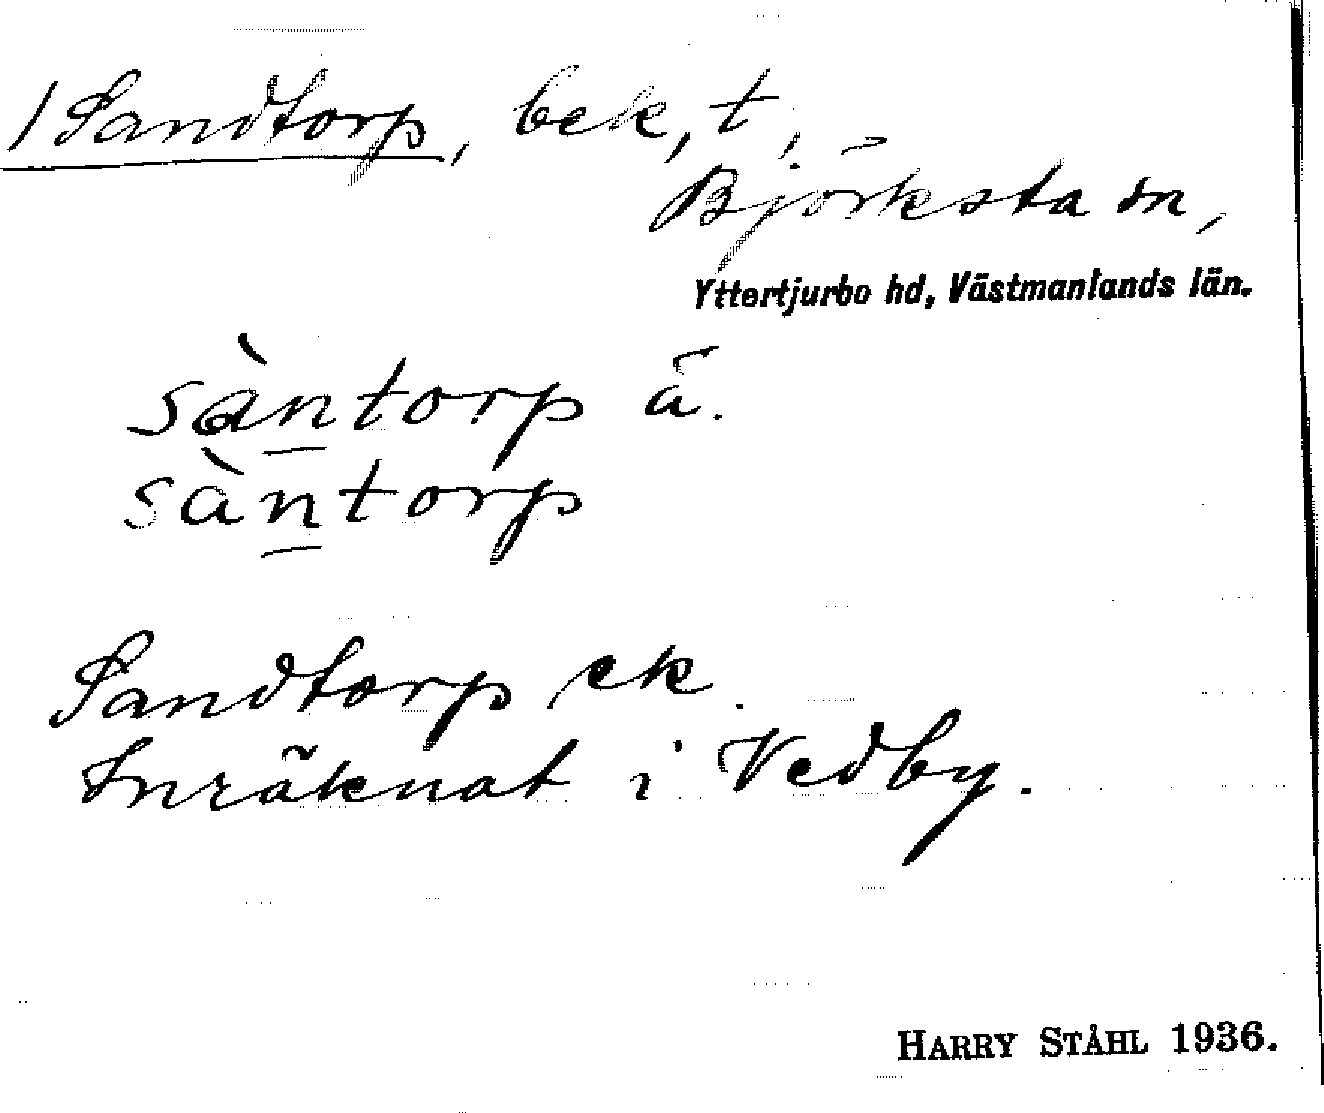 / Sandtorp, bek, t,
Björksta sn,
Yttertjurbo hd, Västmanlands län.
sàntorp ä.
sàntorp
Sandtorp ek.
Inräknat i Vedby.
HARRY STÅHL 1936.